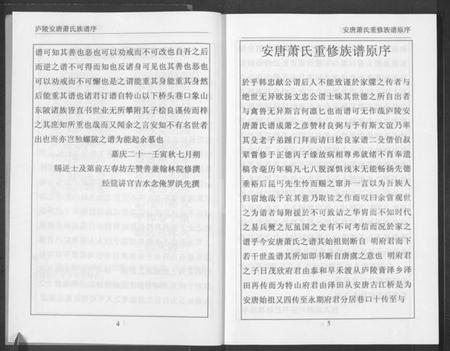 庐陵安唐萧氏族谱序
谱可知其善也恶也可以劝戒而不可改也自吾之后
而逆之谱不可得而知也反诸身可见也其善也恶也
可以劝戒而不可懈也是之谓能重其身能重其身然
后能重其谱也诸君订谱自特山以下桥头巷口象山
东陂诸族皆直书世业无所攀附其子桧良谨传而梓
之其庶知所重也哉而又闻余之言安知不有名世者
出也而亦岂独螺陂之谱为能起余慕也
嘉庆二十一壬寅秋七月朔
赐进士及第前左春坊左赞善兼翰林院修撰
经筵讲官吉水念俺罗洪先撰
4
安唐萧氏重修族谱序
安唐萧氏重修族谱原序
於乎韩忠献公谓后人不能致谨於家牒之传者与
绝世无异欧扬文忠公谓士昧其世德之所自出者
与禽兽无异斯言何凛乜也而谱可无作哉庐陵安
唐萧氏谱成萧之彦赞材良弼与予有斯文谊乃率
其殳老子弟踵门拜而请曰桧良家谱二爻僧伯叔
辈曾修于正德丙子缘故祸相尊弗就绪不肖奉遗
稿含毫历年稿凡七八脱深惧其
垂裕后昆可先生怜而赐之
归宿地哉予哀其意乃取读之作而叹曰余赏观世
之为谱者每附援於不可致诘之华胄而不知时代
之易兵燹之厄虽国之史有不可考信而况於家之
谱乎今安唐萧氏之谱其始祖则断自 明府君而下
若干世盖谱其所知即书断自唐虞之意也 明府君
之子日茂欣府君由泰和早禾渡从庐陵膏泽乡泽
田再传而为特山府君由泽田从安唐古江桥是为
安唐始祖又四传至永期府君分居巷口十传至与
5